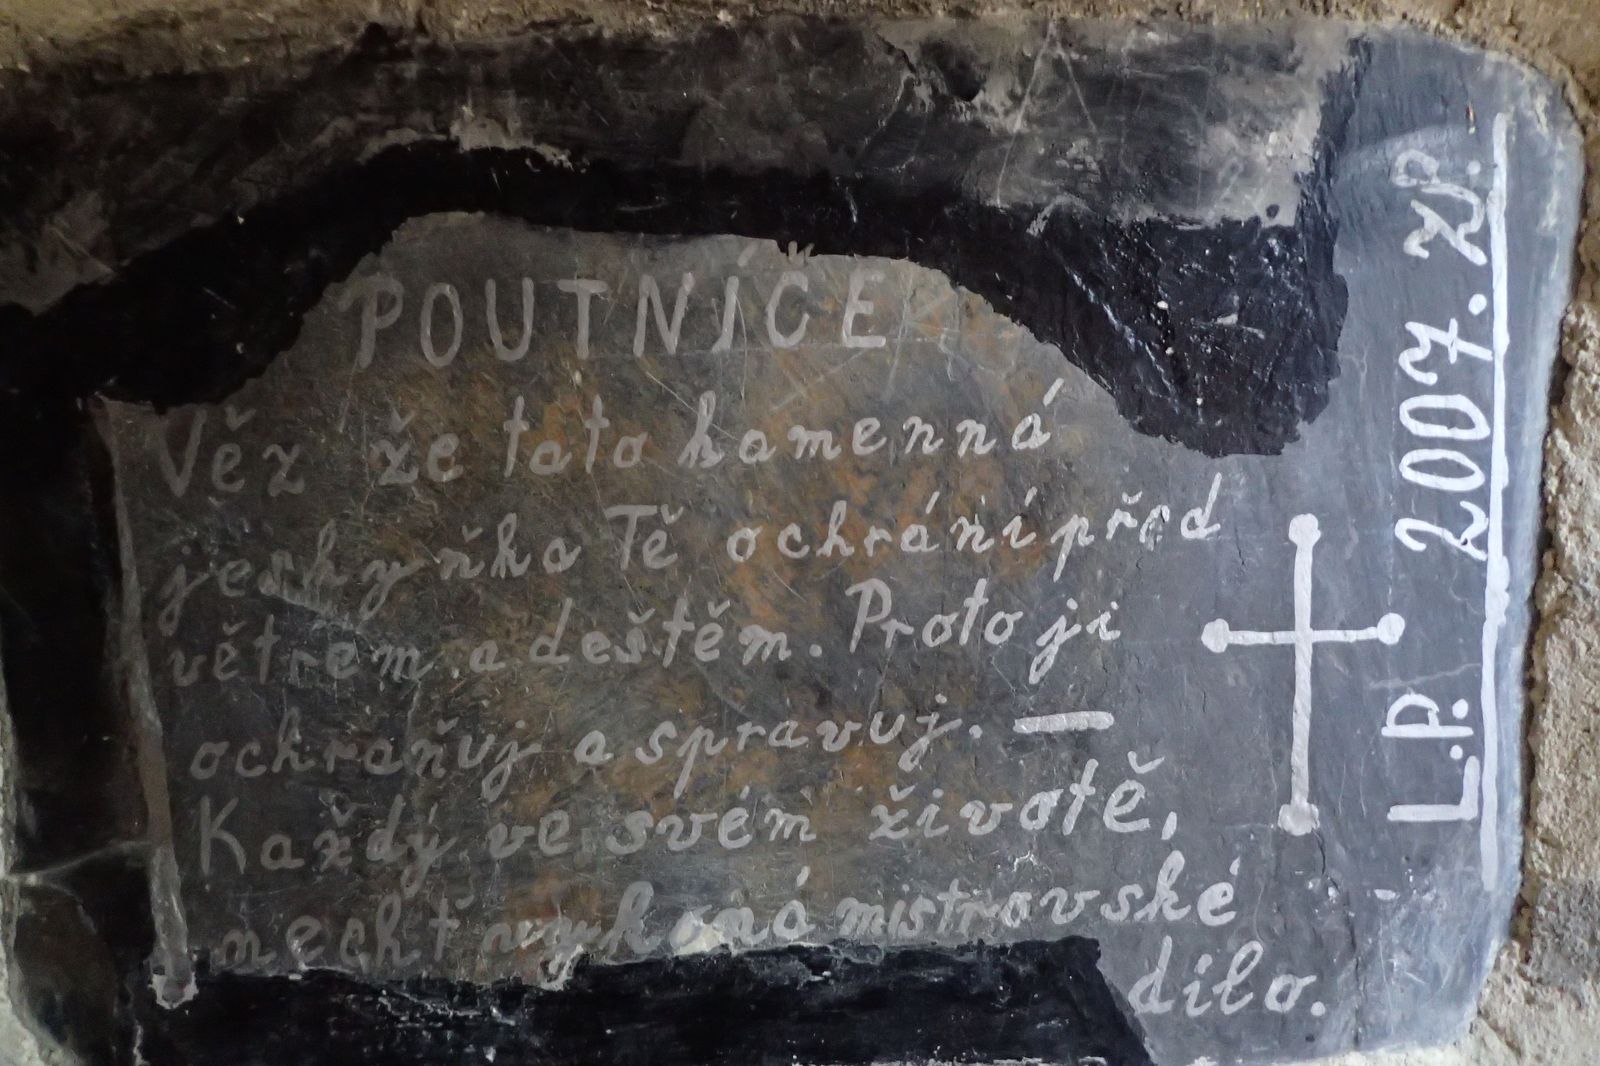 POUTNÍČE
Věz že tato kamenná
jeskyňka Tě ochrání před
větrem a deštěm. Proto ji
ochraňuj a spravuj. —
Každý ve svém životě,
nechť vykoná mistrovské
dílo.
L.P. 2007. ZP.